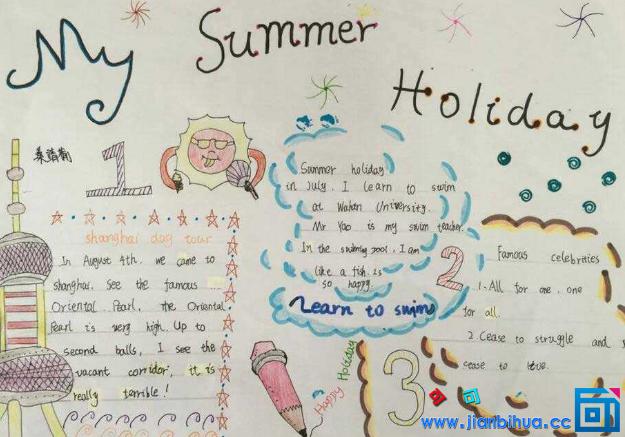 My Summer Holiday
1
shanghai day tour
In August 4th, we came to
shanghai. See the famous
Oriental Pearl, the Oriental
Pearl is very high. Up to
second balls, I see the
vacant corridor, it is
really terrible!
Summer holiday
in July, I learn to swim
at Wuhan University.
Mr Yao is my swim teacher.
In the swimming pool, I am
like a fish. is
so happy.
Learn to swim
2
Happy Holiday
3
Famous celebrities
1. All for one, one
for all.
2. Cease to struggle and
cease to live.
www.jianbihua.cc